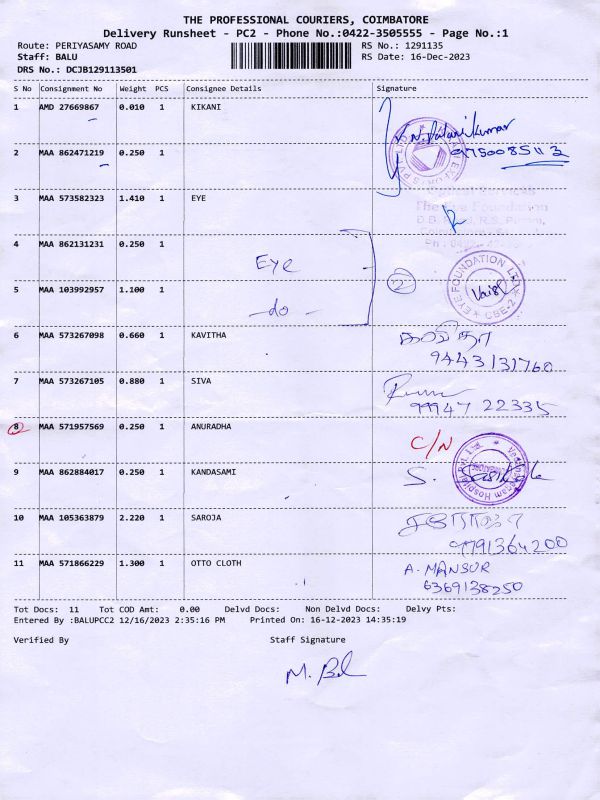 THE PROFESSIONAL COURIERS, COIMBATORE
Delivery Runsheet - PC2 - Phone No.:0422-3505555 - Page No.:1
Route: PERIYASAMY ROAD RS No.: 1291135
Staff: BALU RS Date: 16-Dec-2023
DRS No.: DCJB129113501
S No Consignment No Weight PCS Consignee Details Signature
1 AMD 27669867 0.010 1 KIKANI
N. Palanikumar
9750085113
2 MAA 862471219 0.250 1
3 MAA 573582323 1.410 1 EYE
The Eye Foundation
4 MAA 862131231 0.250 1 Eye
2
EYE FOUNDATION LTD CBE-2
5 MAA 103992957 1.100 1 -do-
6 MAA 573267098 0.660 1 KAVITHA கவிதா
9443131760
7 MAA 573267105 0.880 1 SIVA
99947 22335
8 MAA 571957569 0.250 1 ANURADHA C/N
9 MAA 862884017 0.250 1 KANDASAMI S.
10 MAA 105363879 2.220 1 SAROJA சரோஜா
9791364200
11 MAA 571866229 1.300 1 OTTO CLOTH A. MANSUR
6369138250
Tot Docs: 11 Tot COD Amt: 0.00 Delvd Docs: Non Delvd Docs: Delvy Pts:
Entered By :BALUPCC2 12/16/2023 2:35:16 PM Printed On: 16-12-2023 14:35:19
Verified By Staff Signature
M. Bal